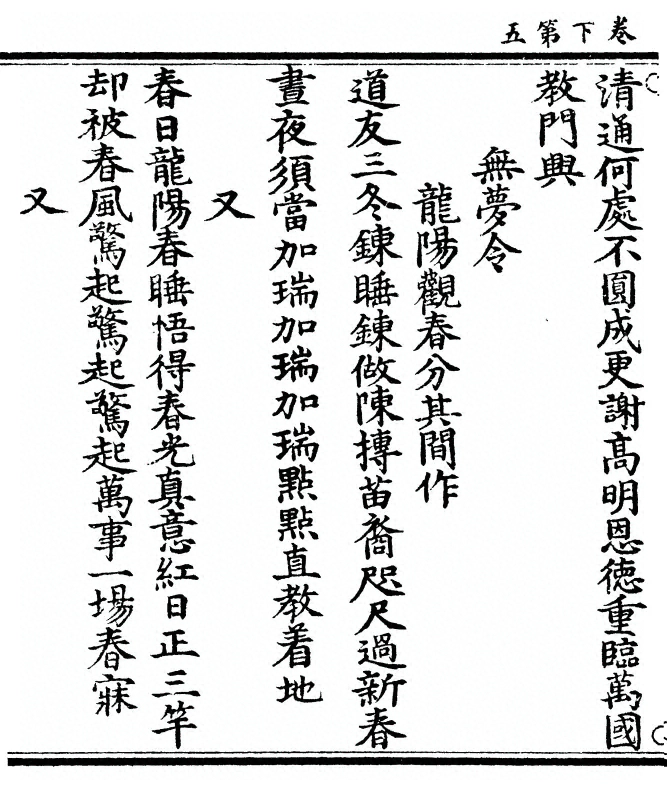 卷下第五
清通何處不圓成更謝高明恩德重臨萬國
教門興
無夢令
龍陽觀春分其間作
道友三冬鍊睡鍊做陳摶苗裔咫尺過新春
晝夜須當加瑞加瑞加瑞點點直教着地
又
春日龍陽春睡悟得春光真意紅日正三竿
却被春風驚起驚起驚起萬事一場春寐
又